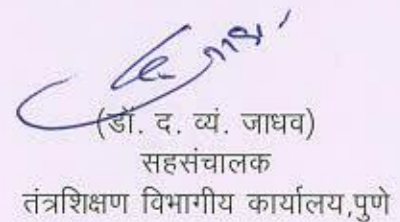 (डॉ. द. व्यं. जाधव)
सहसंचालक
तंत्रशिक्षण विभागीय कार्यालय,पुणे